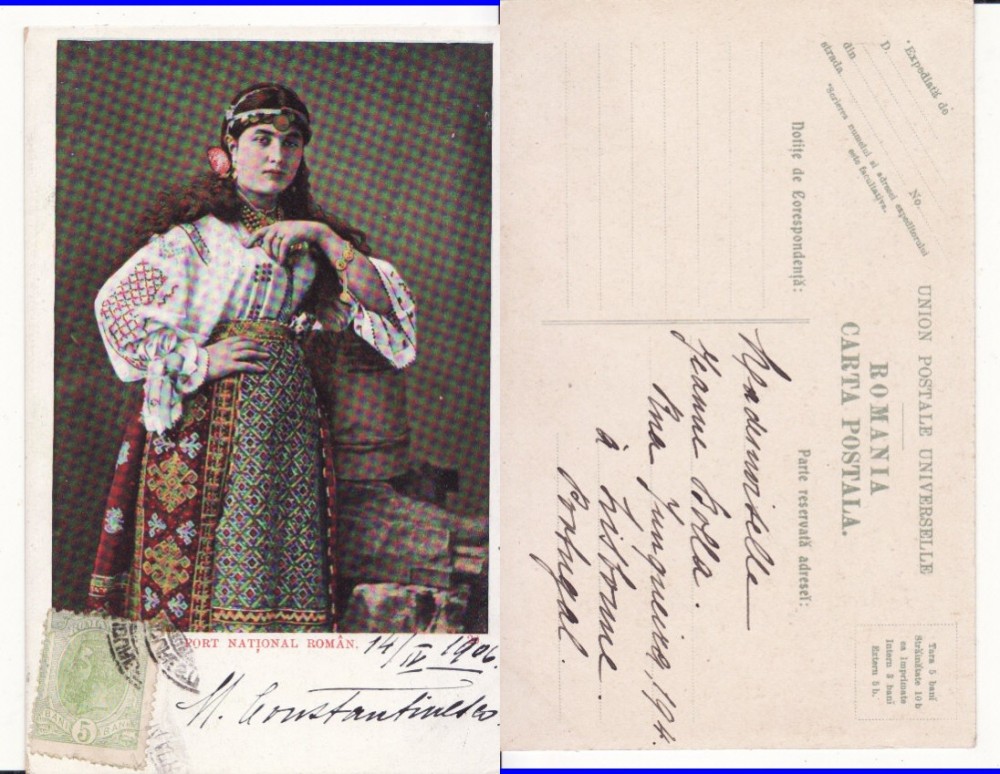 PORT NAȚIONAL ROMÂN.
14/IV 1906.
M. Constantinesco
5
BANI
UNION POSTALE UNIVERSELLE
ROMANIA
CARTA POSTALA.
*Expediată de
D.
din
No.
strada
*Scrierea numelui și adresei expeditorului
este facultativa.
Notițe de Corespondență:
Parte reservată adresei:
Țara 5 bani
Străinătate 10 b
ca imprimate
Intern 3 bani
Extern 5 b.
Mademoiselle
Jeanne Bolla.
Rua Junqueira, 194.
à Lisbonne.
Portugal.